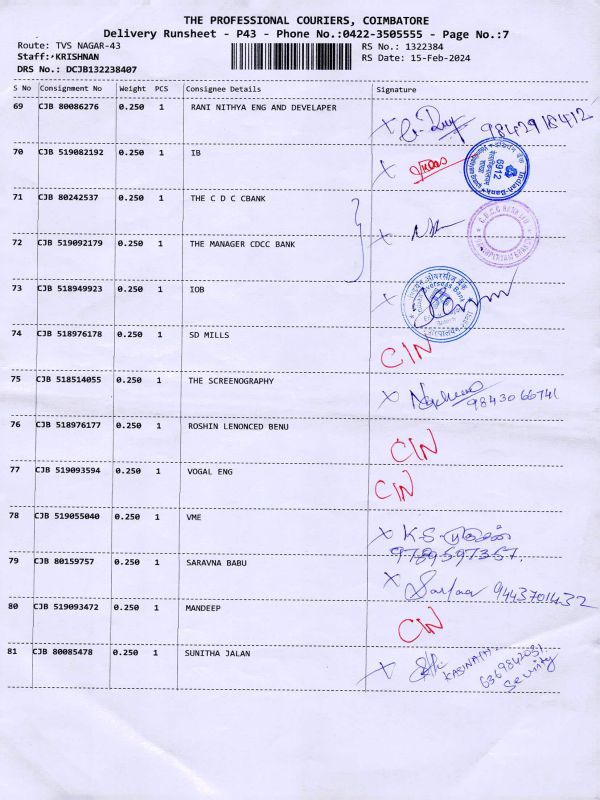 THE PROFESSIONAL COURIERS, COIMBATORE
Delivery Runsheet - P43 - Phone No.:0422-3505555 - Page No.:7
Route: TVS NAGAR-43 RS No.: 1322384
Staff: KRISHNAN RS Date: 15-Feb-2024
DRS No.: DCJB132238407
S No Consignment No Weight PCS Consignee Details Signature
69 CJB 80086276 0.250 1 RANI NITHYA ENG AND DEVELAPER 9842918412
70 CJB 519082192 0.250 1 IB
6912
Indian Bank
71 CJB 80242537 0.250 1 THE C D C CBANK
72 CJB 519092179 0.250 1 THE MANAGER CDCC BANK
73 CJB 518949923 0.250 1 IOB
Indian Overseas Bank
74 CJB 518976178 0.250 1 SD MILLS CIN
75 CJB 518514055 0.250 1 THE SCREENOGRAPHY 9843066741
76 CJB 518976177 0.250 1 ROSHIN LENONCED BENU CIN
77 CJB 519093594 0.250 1 VOGAL ENG CIN
78 CJB 519055040 0.250 1 VME K-S
9789597357
79 CJB 80159757 0.250 1 SARAVNA BABU 9443701432
80 CJB 519093472 0.250 1 MANDEEP CIN
81 CJB 80085478 0.250 1 SUNITHA JALAN KASINATH
6369842031
Security